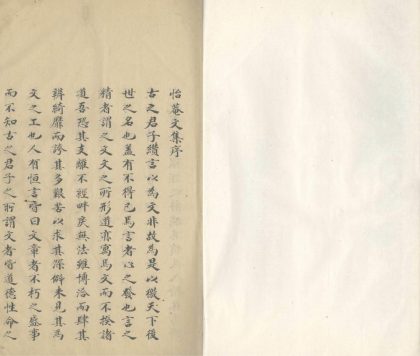 怡菴文集序
古之君子纘言以為文非故為是以徼天下後
世之名也蓋有不得已焉言者心之發也言之
精者謂之文文之所形道亦寓焉文而不揆諸
道吾恐其支離不經畔戾無法雖博洽而肆其
辨綺靡而誇其多艱苦以求其深僻未見其為
文之工也人有恒言皆曰文章者不朽之盛事
而不知古之君子之所謂文者皆道德性命之